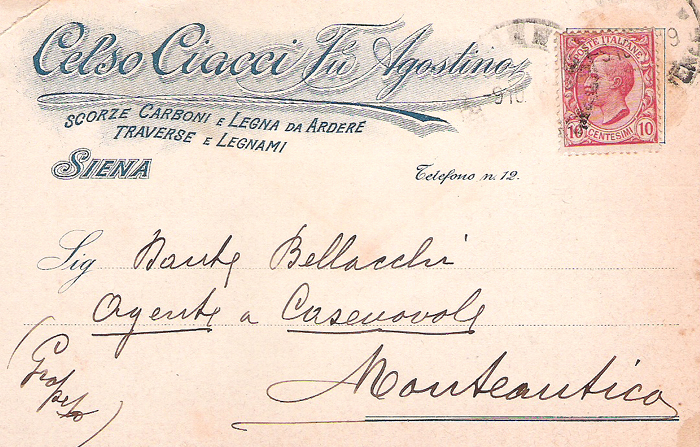 Celso Ciacci Fu Agostino
SCORZE CARBONI E LEGNA DA ARDERE
TRAVERSE E LEGNAMI
SIENA
Telefono n. 12.
POSTE ITALIANE
10 CENTESIMI 10
Sig Dante Bellacchi
Agente a Casenovole
Monteantico